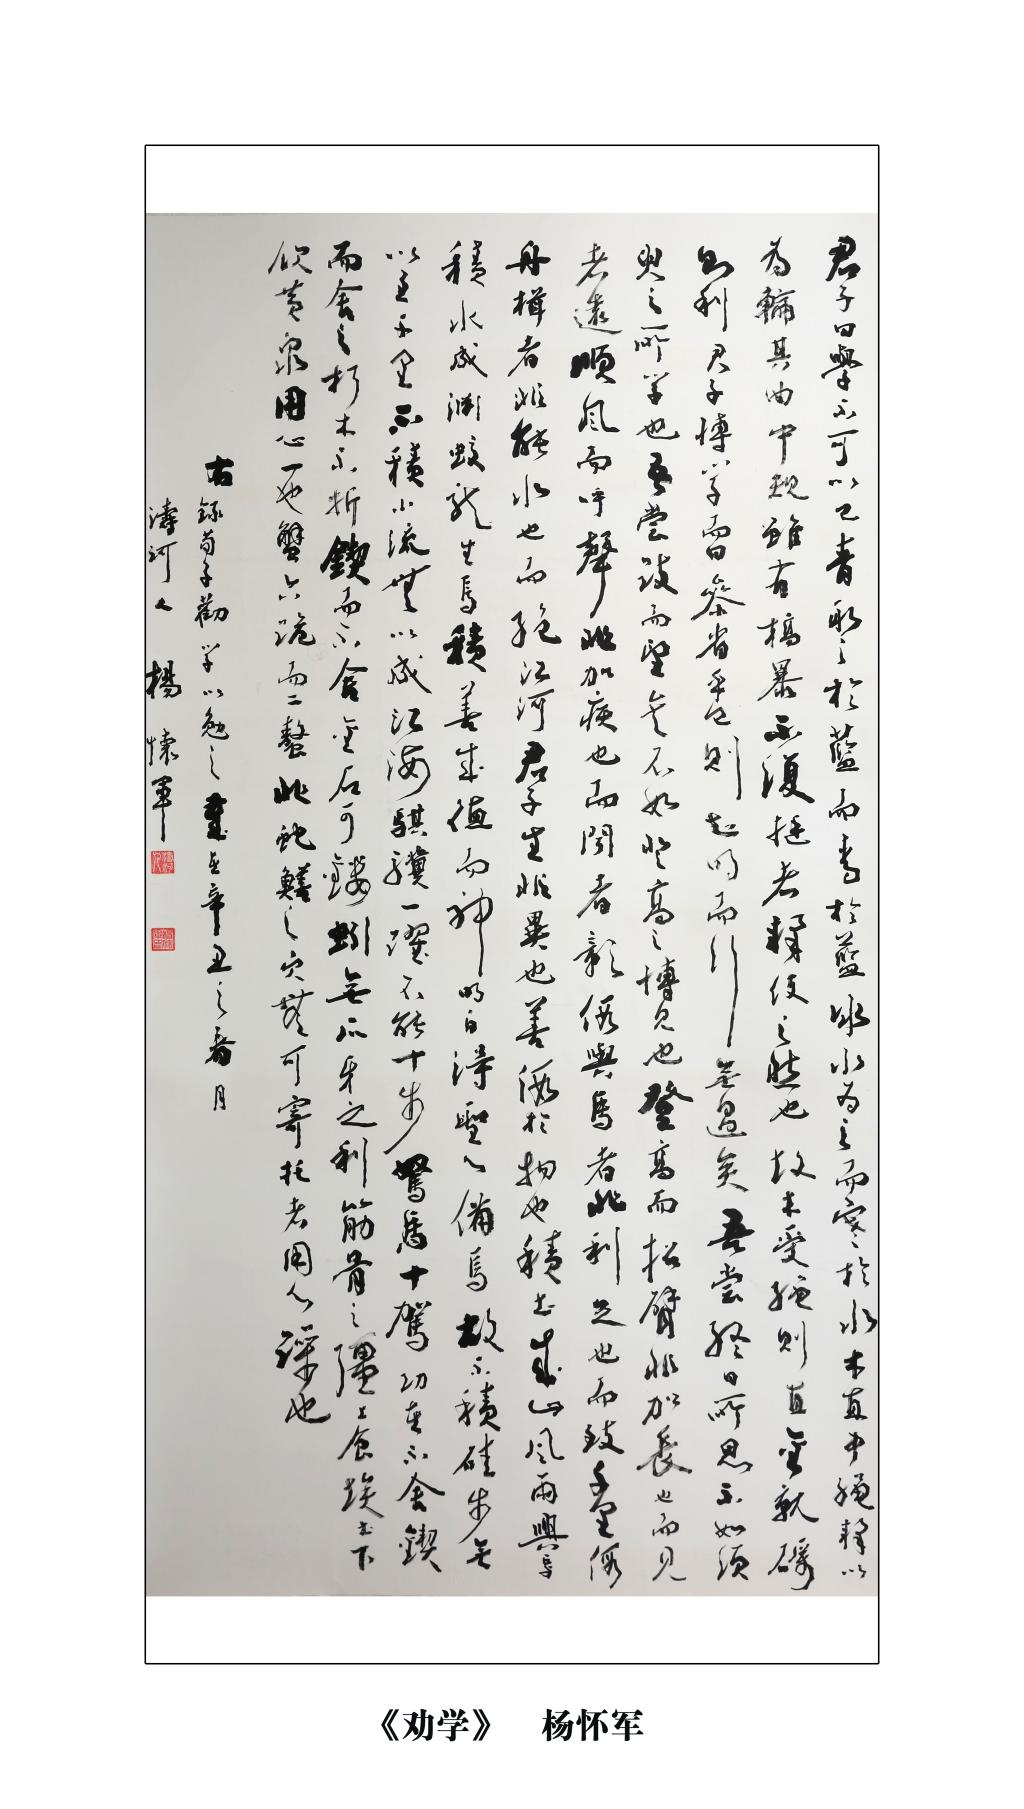 君子曰學不可以已青取之於藍而青於藍冰水為之而寒於水木直中繩輮以
為輪其曲中規雖有槁暴不復挺者輮使之然也故木受繩則直金就礪
則利君子博學而日參省乎己則知明而行無過矣吾嘗終日所思不如須
臾之所学也吾嘗跂而望矣不如登高之博見也登高而招臂非加長也而見
者遠順風而呼聲非加疾也而聞者彰假輿馬者非利足也而致千里假
舟楫者非能水也而絕江河君子生非異也善假於物也積土成山風雨興焉
積水成淵蛟龍生焉積善成德而神明自得聖心備焉故不積硅步無
以至千里不積小流無以成江海騏驥一躍不能十步駑馬十駕功在不舍鍥
而舍之朽木不折鍥而不舍金石可鏤蚓無爪牙之利筋骨之彊上食埃土下
飲黃泉用心一也蟹六跪而二螯非蛇鱔之穴無可寄托者用心躁也
右錄荀子勸学以勉之歲在辛丑之春月
濤河人 楊懷軍
《劝学》 杨怀军